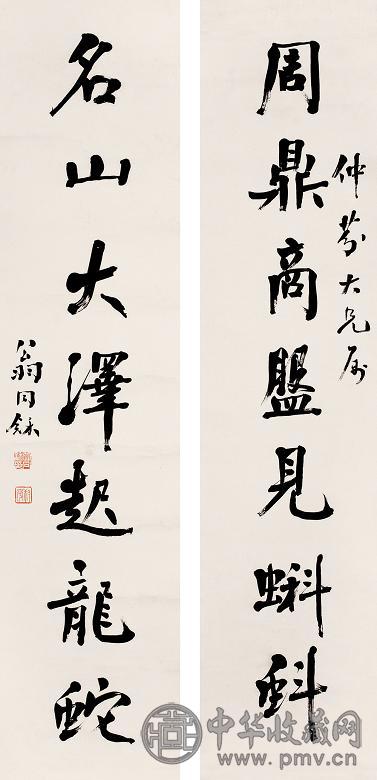 仲芬大兄属
周鼎商盤見蝌蚪
名山大澤起龍蛇
翁同龢
中华收藏网
www.pmv.cn